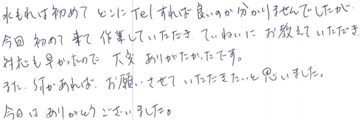 水もれは初めて どこにTelすれば良いのか分かりませんでしたが、
今回 初めて来て作業していただき ていねいにお教えていただき
対応も早かったので 大変 ありがたかったです。
また、何かあれば、お願いさせていただきたいと思いました。
今日は ありがとうございました。